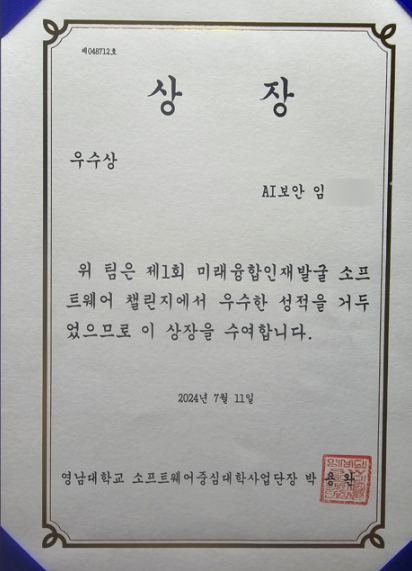 제048712호
상 장
우수상
AI보안 임
위 팀은 제1회 미래융합인재발굴 소프
트웨어 챌린지에서 우수한 성적을 거두
었으므로 이 상장을 수여합니다.
2024년 7월 11일
영남대학교 소프트웨어중심대학사업단장 박 용